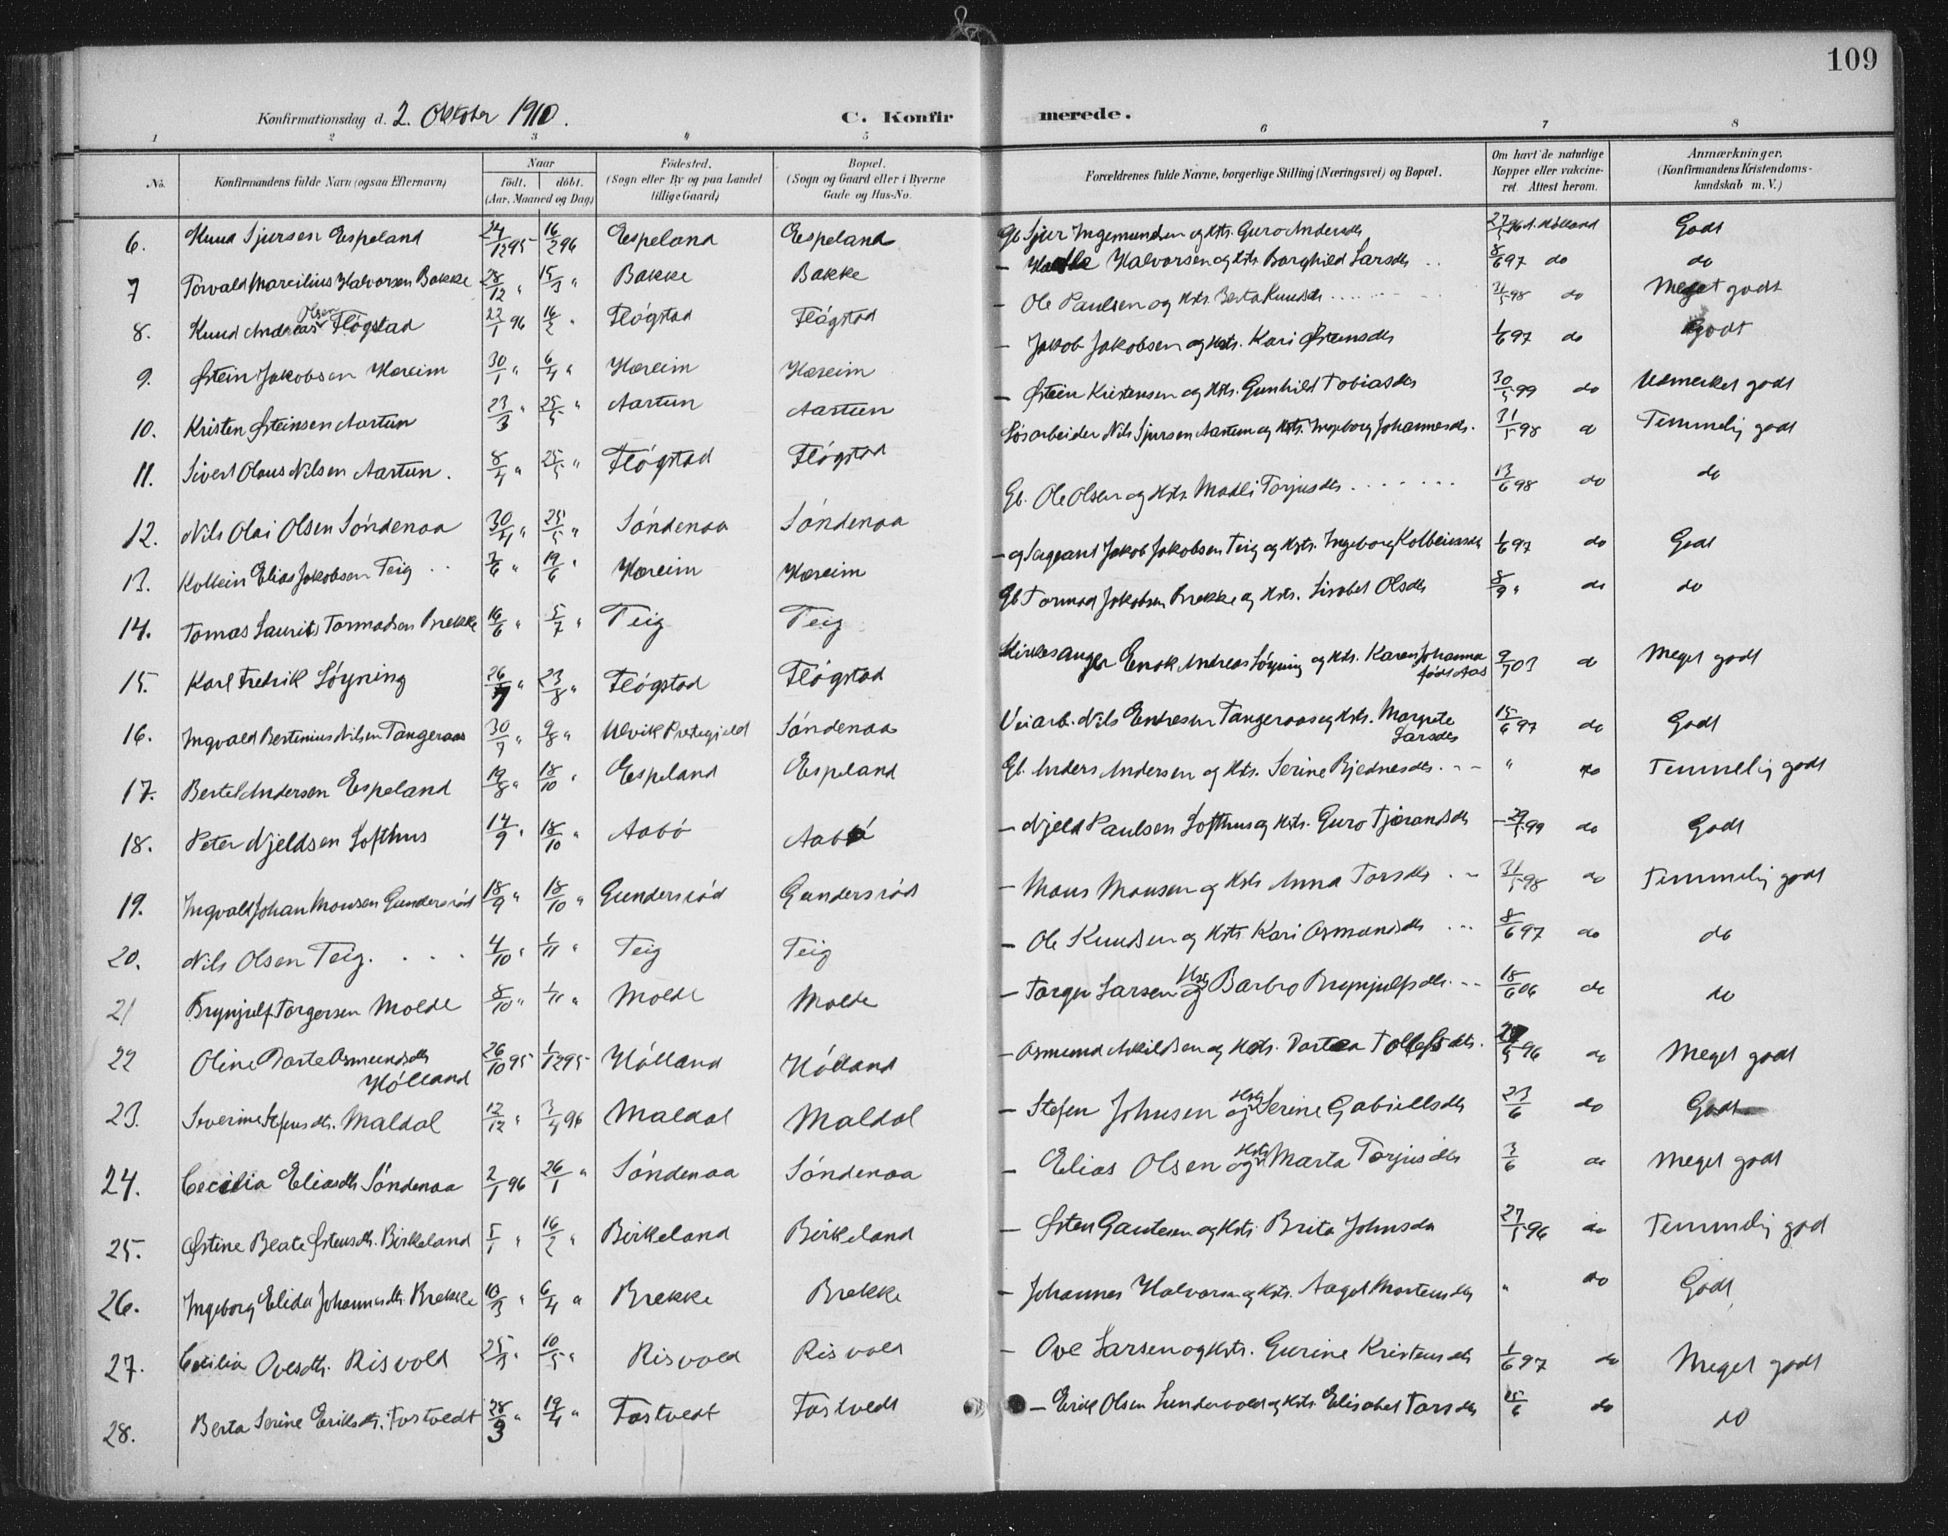 109
Konfirmationsdag d. 2. Oktober 1910.
C. Konfirmerede.
1 2 3 4 5 6 7 8
No. Konfirmandens fulde Navn (ogsaa Efternavn) Naar født. døbt. (Aar, Maaned og Dag) Fødested. (Sogn eller By og paa Landet tillige Gaard) Bopæl. (Sogn og Gaard eller i Byerne Gade og Hus-No. Forældrenes fulde Navne, borgerlige Stilling (Næringsvei) og Bopæl. Om havt de naturlige Kopper eller vaccineret. Attest herom. Anmærkninger. (Konfirmandens Kristendomskundskab m. V.)
6. Knud Sjursen Espeland 24/12 95 16/2 96 Espeland Espeland Gb. Sjur Ingemundsen og Hstr. Guro Andersdr 27/5 96 Godt
7 Torvald Marcilius Halvorsen Bakke 28/12 " 15/3 " Bakke Bakke — Halvorsen og Hstr. Borghild Larsdr 8/6 97 do do
8. Knud Andreas Olsen Fløgstad 22/1 96 16/2 " Fløgstad Fløgstad — Ole Paulsen og Hstr. Berta Knudsdr 31/5 98 do Meget godt
9. Østein Jakobsen Hereim 30/1 " 6/4 " Hereim Hereim — Jakob Jakobsen og Hstr. Kari Østensdr 1/6 97 do Godt
10. Kristen Østeinsen Aartun 23/3 " 25/5 " Aartun Aartun — Østein Kristensen og Hstr. Gunhild Tobiasdr 30/5 99 do Udmerket godt
11. Sivert Olaus Nilsen Aartun. 8/4 " 25/5 " Fløgstad Fløgstad Løsarbeider Nils Sjursen Aartun og Hstr. Ingeborg Johannesdr. 31/5 98 do Temmelig godt
12. Nils Olai Olsen Søndenaa 30/4 " 25/5 " Søndenaa Søndenaa Gb. Ole Olsen og Hstr. Madli Torjusdr 13/6 98 do do
13. Kolbein Elias Jakobsen Teig 3/6 " 19/6 " Hereim Hereim — og Sergeant Jakob Jakobsen Teig og Hstr. Ingeborg Kolbeinsdr 1/6 97 do Godt
14. Tomas Laurits Tormodsen Brekke 16/6 " 5/7 " Teig Teig Gb Tormod Jakobsen Brekke og Hstr. Lisabet Olsdr 8/9 " do do
15. Karl Fredrik Løyning 26/7 " 23/8 " Fløgstad Fløgstad Kirkesanger Enok Andreas Løyning og Hstr. Karen Johanna født Aas 9/7 03 do Meget godt
16. Ingvald Bertinius Nilsen Tangeraas 30/7 " 9/8 " Ulvik Prestegjeld Søndenaa Veiarb. Nils Endresen Tangeraas og Hstr. Margrete Larsdr 15/6 97 do Godt
17. Bertel Andersen Espeland 19/8 " 18/10 " Espeland Espeland Gb. Anders Andersen og Hstr. Serine Bjednesdr. " do Temmelig godt
18. Peter Njeldsen Lofthus 14/9 " 18/10 " Aabø Aabø — Njeld Paulsen Lofthus og Hstr. Guro Tjerandsdr 29/5 99 do Godt
19. Ingvald Johan Monsen Gundersrød 18/9 " 18/10 " Gundersrød Gundersrød — Mons Monsen og Hstr Anna Torsdr 31/5 98 do Temmelig godt
20. Nils Olsen Teig. 4/10 " 1/11 " Teig Teig — Ole Knudsen og Hstr. Kari Osmundsdr 8/6 97 do do
21 Brynjulf Torgersen Molde 8/10 " 1/11 " Molde Molde — Torger Larsen og Hstr Barbro Brynjulfsdr. 18/6 06 do do
22 Oline Dorte Osmundsdr Hølland 26/10 95 1/12 95 Hølland Hølland — Osmund Askildsen og Hstr. Dortea Tollefsdr. 96 do Meget godt
23. Severine Stefensdtr. Maldal 12/12 " 3/4 96 Maldal Maldal — Stefen Johnsen og Hstr Serine Gabrielsdr 23/6 do Godt
24. Cecilia Eliasdtr Søndenaa 2/1 96 26/1 " Søndenaa Søndenaa — Elias Olsen og Hstr Marta Torjusdr 3/6 do Meget godt
25. Østine Beate Østensdtr. Birkeland 5/1 " 16/2 " Birkeland Birkeland — Østen Gautesen og Hstr Brita Johnsdr 27/5 96 do Temmelig god
26. Ingeborg Elida Johannesdtr. Brekke 10/3 " 6/4 " Brekke Brekke — Johannes Halvorsen og Hstr. Aagot Mortensdr " do Godt
27. Cecilia Ovesdtr. Risvold 25/3 " 10/5 " Risvold Risvold — Ove Larsen og Hstr. Gurine Kristensdr 1/6 97 do Meget godt
28. Berta Serine Eriksdtr. Tostvedt 28/3 " 19/4 " Tostvedt Tostvedt — Erik Olsen Sundevold og Hstr. Elisabet Torsdr 15/6 do do